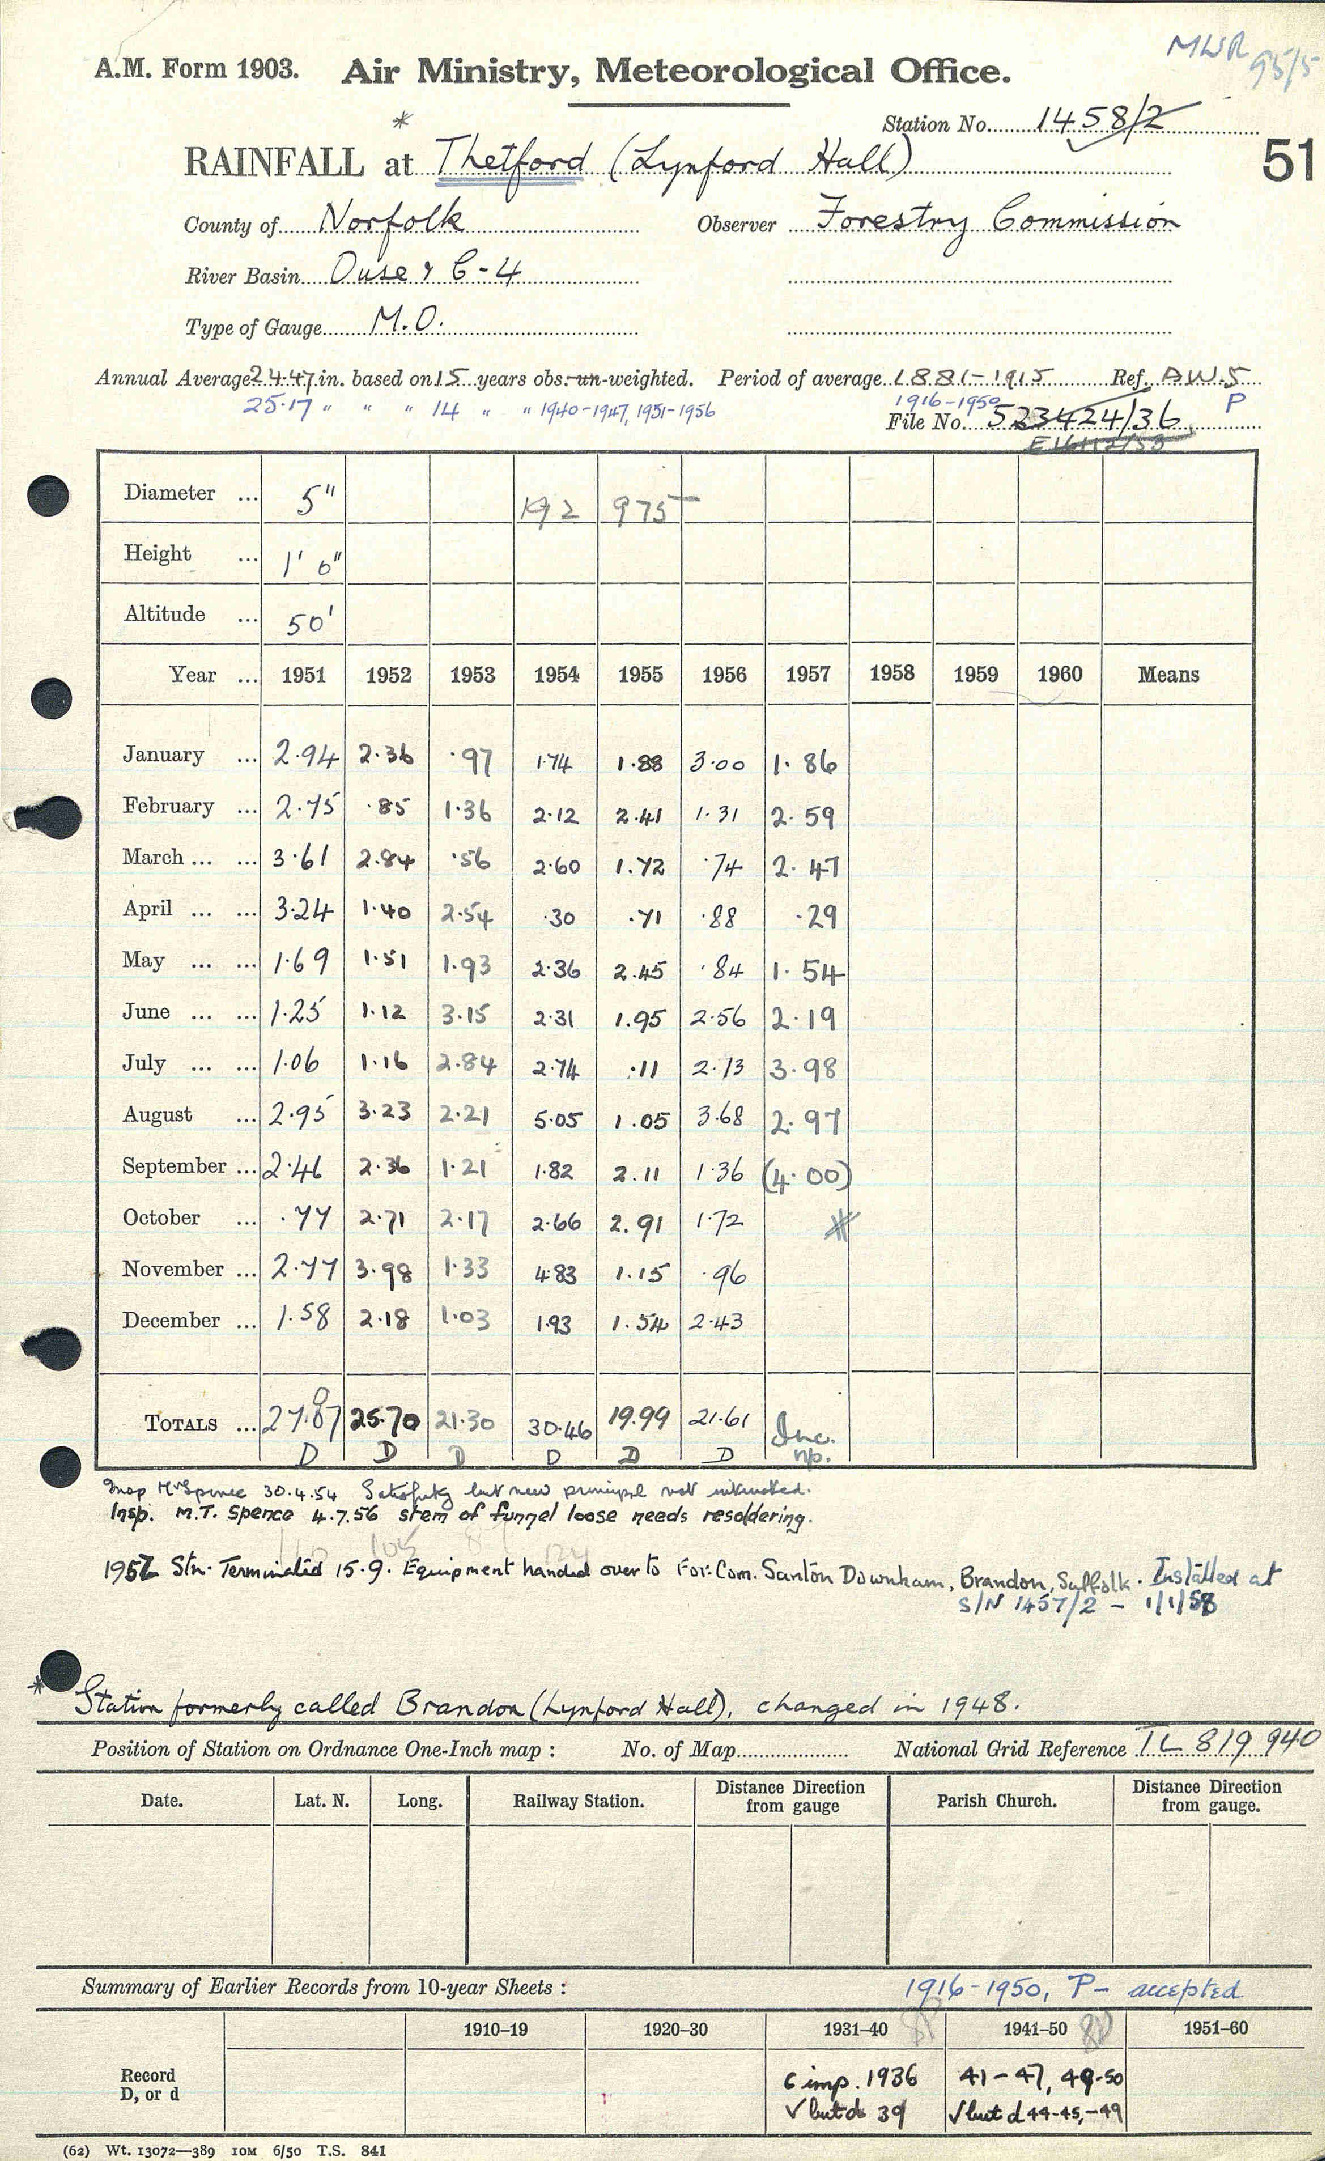 MWR 95/5
A.M. Form 1903. Air Ministry, Meteorological Office.
Station No. 1458/2
51
* RAINFALL at Thetford (Lynford Hall)
County of Norfolk Observer Forestry Commission
River Basin Ouse & C-4
Type of Gauge M.O.
Annual Average 24.47 in. based on 15 years obs. un-weighted. Period of average 1881-1915 Ref. AW.5
25.17 " " " 14 " " 1940-1947, 1951-1956 1916-1950 P
File No. 523424/36
Diameter ... 5" 192 975
Height ... 1' 0"
Altitude ... 50'
Year ... 1951 1952 1953 1954 1955 1956 1957 1958 1959 1960 Means
January ... 2.94 2.36 .97 1.74 1.88 3.00 1.86
February ... 2.75 .85 1.36 2.12 2.41 1.31 2.59
March ... ... 3.61 2.84 .56 2.60 1.72 .74 2.47
April ... ... 3.24 1.40 2.54 .30 .71 .88 .29
May ... ... 1.69 1.51 1.93 2.36 2.45 .84 1.54
June ... ... 1.25 1.12 3.15 2.31 1.95 2.56 2.19
July ... ... 1.06 1.16 2.84 2.74 .11 2.13 3.98
August ... 2.95 3.23 2.21 5.05 1.05 3.68 2.97
September ... 2.46 2.36 1.21 1.82 2.11 1.36 (4.00)
October ... .77 2.71 2.17 2.66 2.91 1.72
November ... 2.77 3.98 1.33 4.83 1.15 .96
December ... 1.58 2.18 1.03 1.93 1.54 2.43
TOTALS ... 27.07 25.70 21.30 30.46 19.99 21.61 Inc.
D D D D D D np.
Insp Mr Spence 30.4.54 Satisfactory but new principal not interested.
Insp. M.T. Spence 4.7.56 stem of funnel loose needs resoldering.
1957 Stn. Terminated 15.9. Equipment handed over to For. Com. Santon Downham, Brandon, Suffolk. Installed at
S/N 1457/2 - 1/1/58
* Station formerly called Brandon (Lynford Hall), changed in 1948.
Position of Station on Ordnance One-Inch map : No. of Map National Grid Reference TL 819 940
Date. Lat. N. Long. Railway Station. Distance from gauge Direction Parish Church. Distance from gauge. Direction
Summary of Earlier Records from 10-year Sheets : 1916-1950, P- accepted
1910–19 1920–30 1931–40 1941–50 1951–60
Record 6 imp. 1936 41-47, 49-50
D, or d √ but d 39 √ but d 44-45, -49
(62) Wt. 13072—389 10M 6/50 T.S. 841